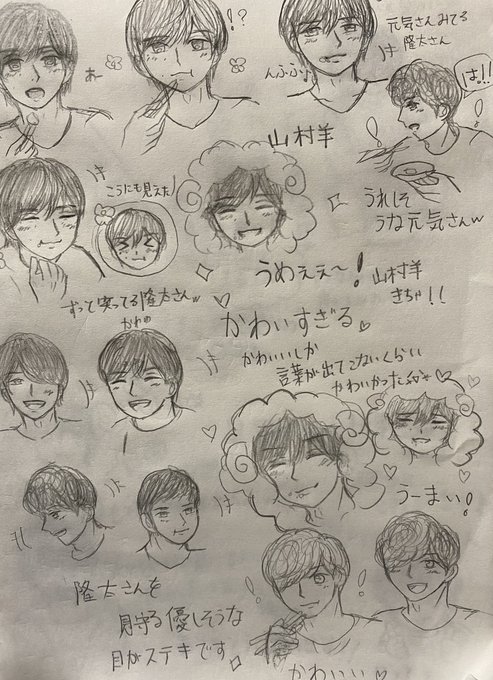 !?
元気さんみてる
隆太さん
あー
んふふ♪
は!!
山村羊
こうにも見えた
うれしそ
うな元気さんw
うめぇぇ〜!
山村羊
きちゃ!!
ずっと笑ってる隆太さん
かわゆ
かわいすぎる
かわいいしか
言葉が出てこないくらい
かわいかった
うーまい!
隆太さんを
見守る優しそうな
目がステキです。
かわいい